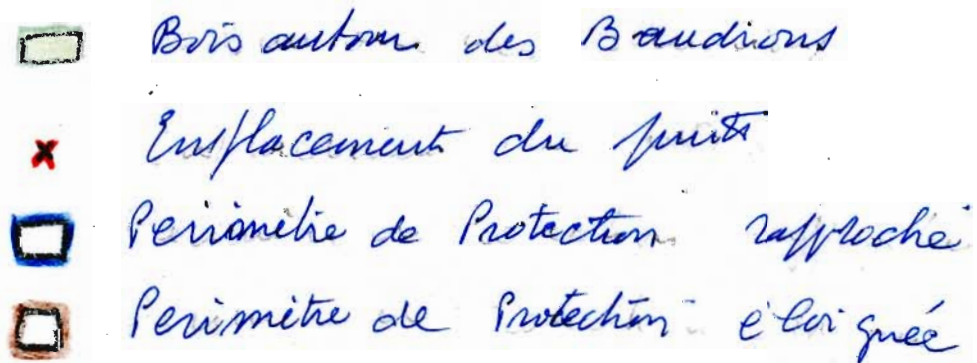 Bois autour des Baudrions
Emplacement du puits
Périmètre de Protection rapproché
Périmètre de Protection éloignée